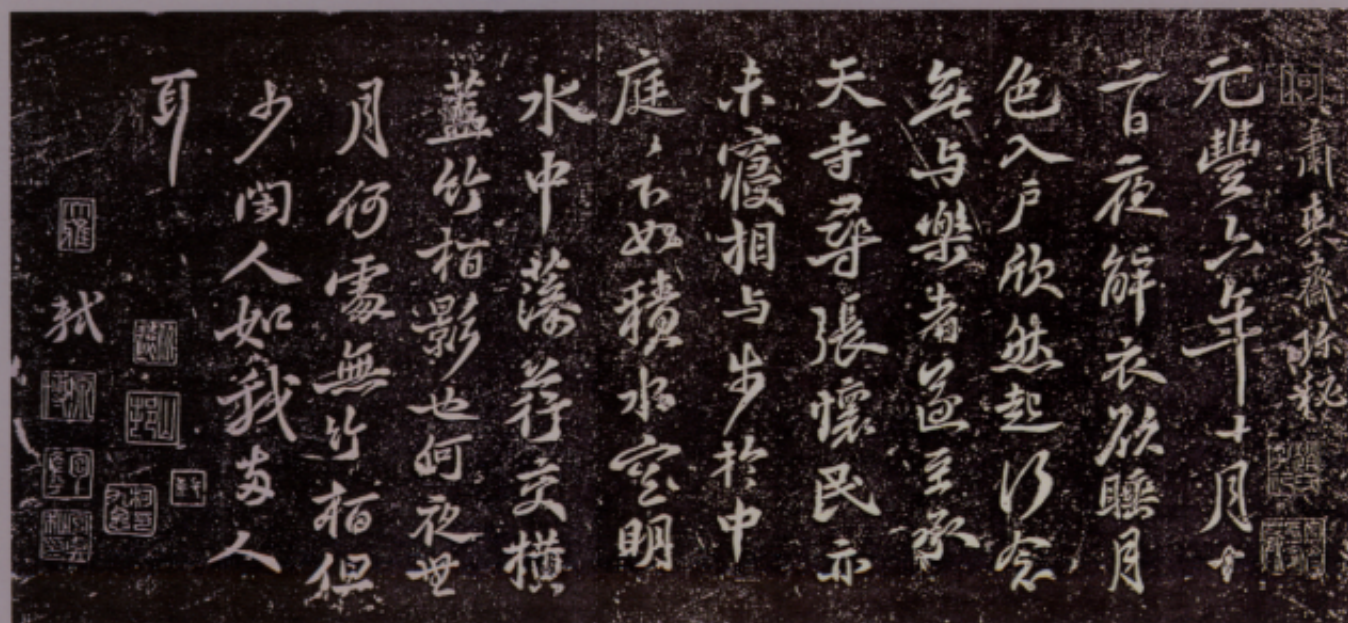 肅爽齋珍秘
元豐六年十月十
二日夜解衣欲睡月
色入户欣然起行念
無与樂者遂至承
天寺尋張懷民亦
未寢相与步於中
庭々下如積水空明
水中藻荇交橫
蓋竹柏影也何夜無
月何處無竹柏但
少閑人如我兩人
耳
軾